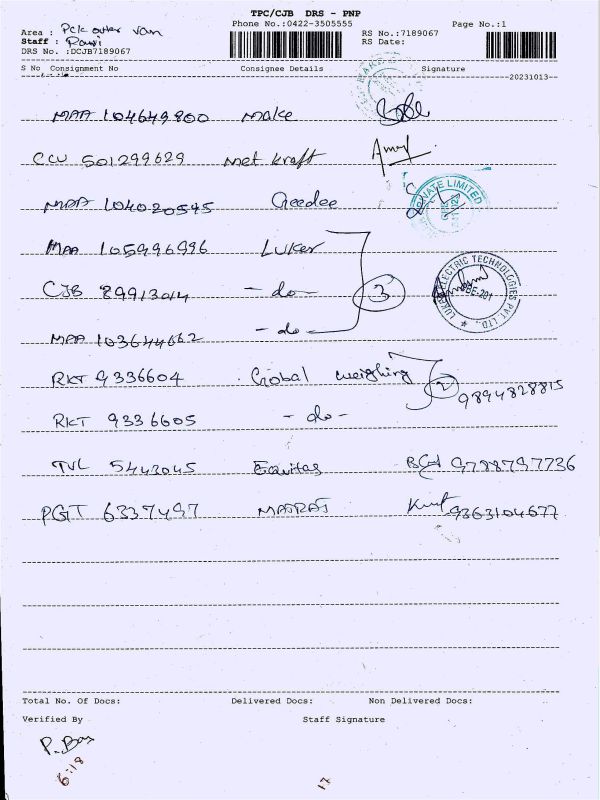 TPC/CJB DRS - PNP
Phone No.:0422-3505555
Page No.:1
Area : Pck outer van
Staff :
RS No.:7189067
DRS No. :DCJB7189067
RS Date:
S No Consignment No Consignee Details Signature
20231013
MAA 104649800 Make
CCU 501299629 Met kraft
MAA 104020545 Geedee
PRIVATE LIMITED
MAA 105996996 Luker
CJB 89913014 - do -
3
LUKER ELECTRIC TECHNOLOGIES PVT. LTD.
MAA 103644662 - do -
RKT 9336604 Global weighing
2 9894828815
RKT 9336605 - do -
TVL 5442045 Equitas 9788797736
PGT 6337497 9363104677
Total No. Of Docs: Delivered Docs: Non Delivered Docs:
Verified By Staff Signature
6:18
17